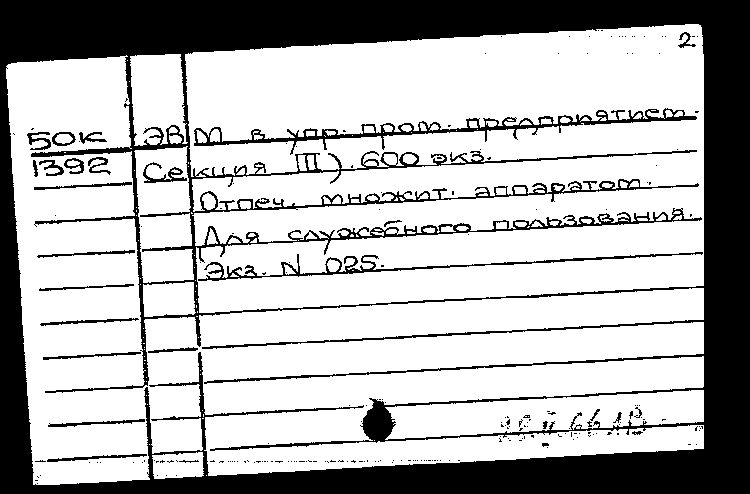 2.
50К ЭВМ в упр. пром. предприятием.
1392 Секция III). 600 экз.
Отпеч. множит. аппаратом.
Для служебного пользования.
Экз. N 025.